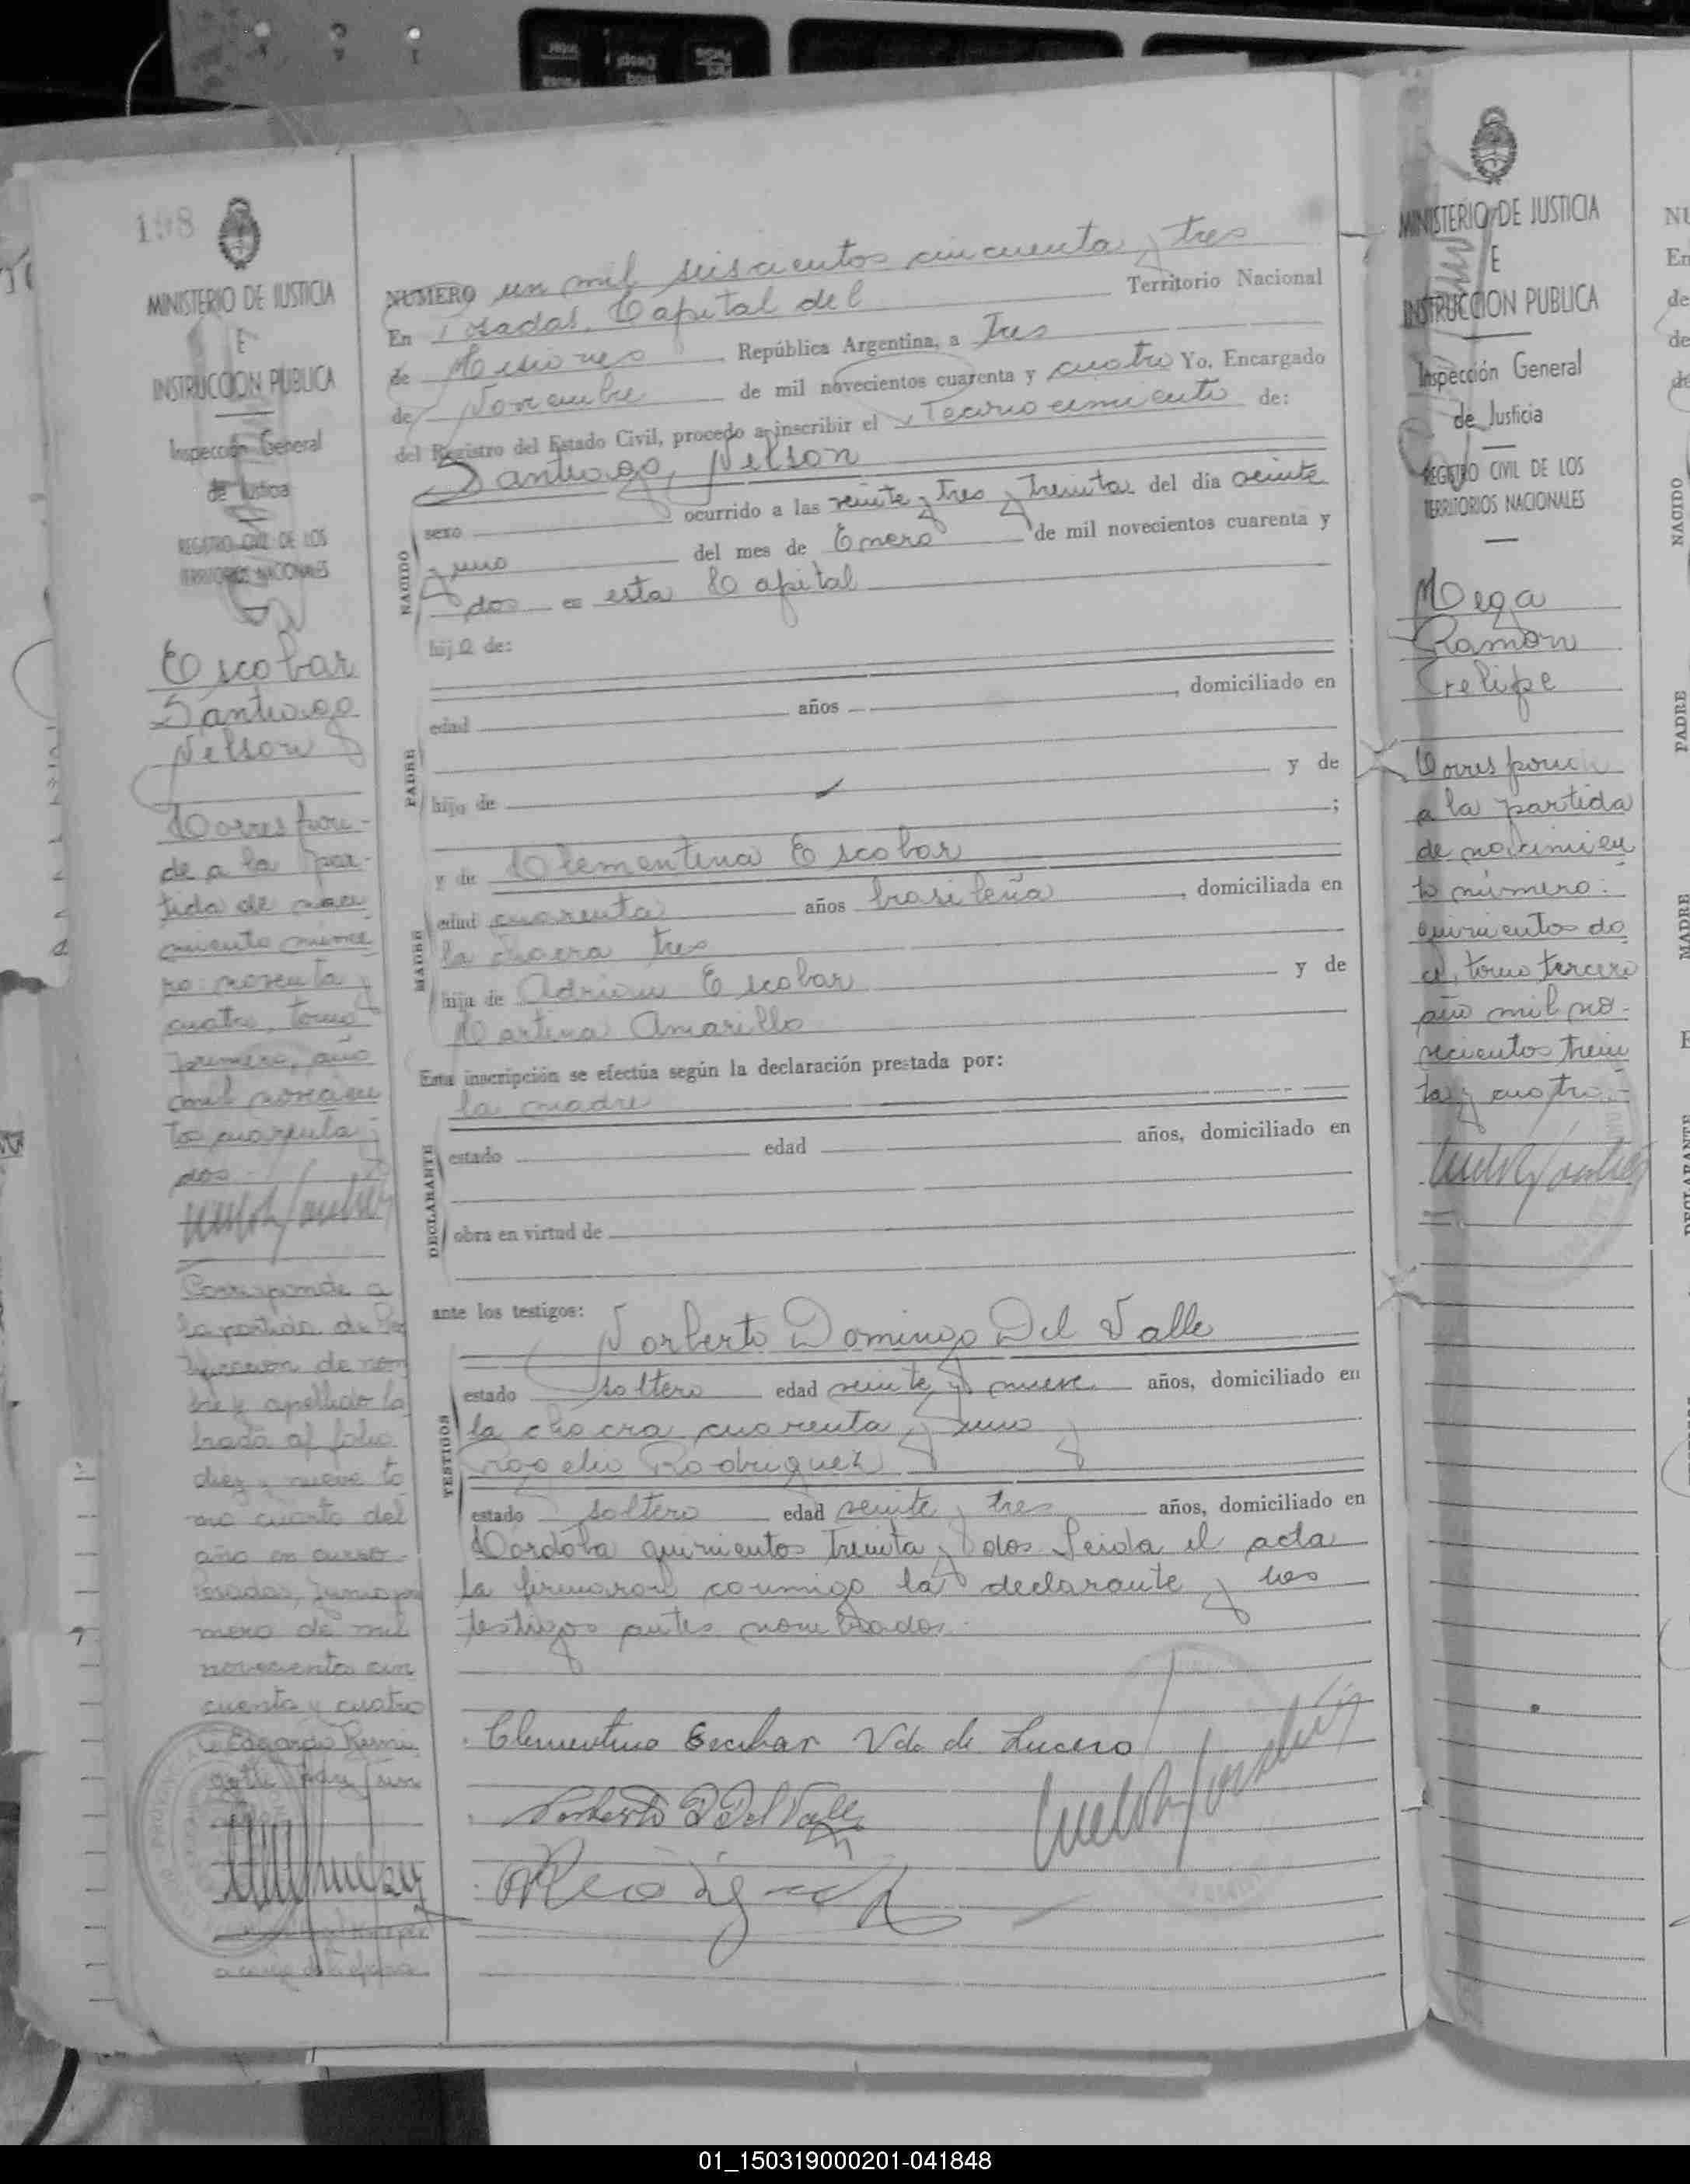 198
MINISTERIO DE JUSTICIA
E
INSTRUCCION PUBLICA
Inspección General
de Justicia
REGISTRO CIVIL DE LOS
TERRITORIOS NACIONALES
Escobar
Santiago
Nelson
Correspon-
de a la par-
tida de naci
miento núme
ro: noventa y
cuatro, tomo
primero, año
mil novecien
tos cuarenta y
dos.-
Corresponde a
la partida de
de nom
bre y apellido la
brada al folio
diez y nueve to
mo cuarto del
año en curso.
Posadas, Junio pri
mero de mil
novecientos cin
cuenta y cuatro
Edgardo
NUMERO un mil seiscientos cincuenta y tres
En Posadas, Capital del Territorio Nacional
de Misiones República Argentina, a Tres
de Noviembre de mil novecientos cuarenta y cuatro Yo, Encargado
del Registro del Estado Civil, procedo a inscribir el reconocimiento de:
Santiago, Nelson
NACIDO
sexo ocurrido a las veinte y tres y treinta del dia veinte
y uno del mes de Enero de mil novecientos cuarenta y
dos en esta Capital
hijo de:
PADRE
edad años , domiciliado en
hijo de y de
;
y de Clementina Escobar
MADRE
edad cuarenta años brasileña , domiciliada en
la chacra tres
hija de Adrian Escobar y de
Martina Amarillo
Esta inscripción se efectúa según la declaración prestada por:
la madre
DECLARANTE
estado edad años, domiciliado en
obra en virtud de
ante los testigos:
Norberto Domingo Del Valle
TESTIGOS
estado soltero edad veinte y nueve años, domiciliado en
la chacra cuarenta y uno y
Rogelio Rodriguez
estado soltero edad veinte y tres años, domiciliado en
Córdoba quinientos treinta y dos Leida el acta
la firmaron conmigo la declarante y los
testigos antes nombrados.
Clementina Escobar Vda de Lucero
Norberto D Del Valle
MINISTERIO DE JUSTICIA
E
INSTRUCCION PUBLICA
Inspección General
de Justicia
REGISTRO CIVIL DE LOS
TERRITORIOS NACIONALES
Vega
Ramón
Felipe
Corresponde
a la partida
de nacimien
to número:
quinientos do
ce, tomo tercero
año mil no-
vecientos trein
ta y cuatro.-
NU
En
de
de
NACIDO
PADRE
MADRE
E
DECLARANTE
01_150319000201-041848